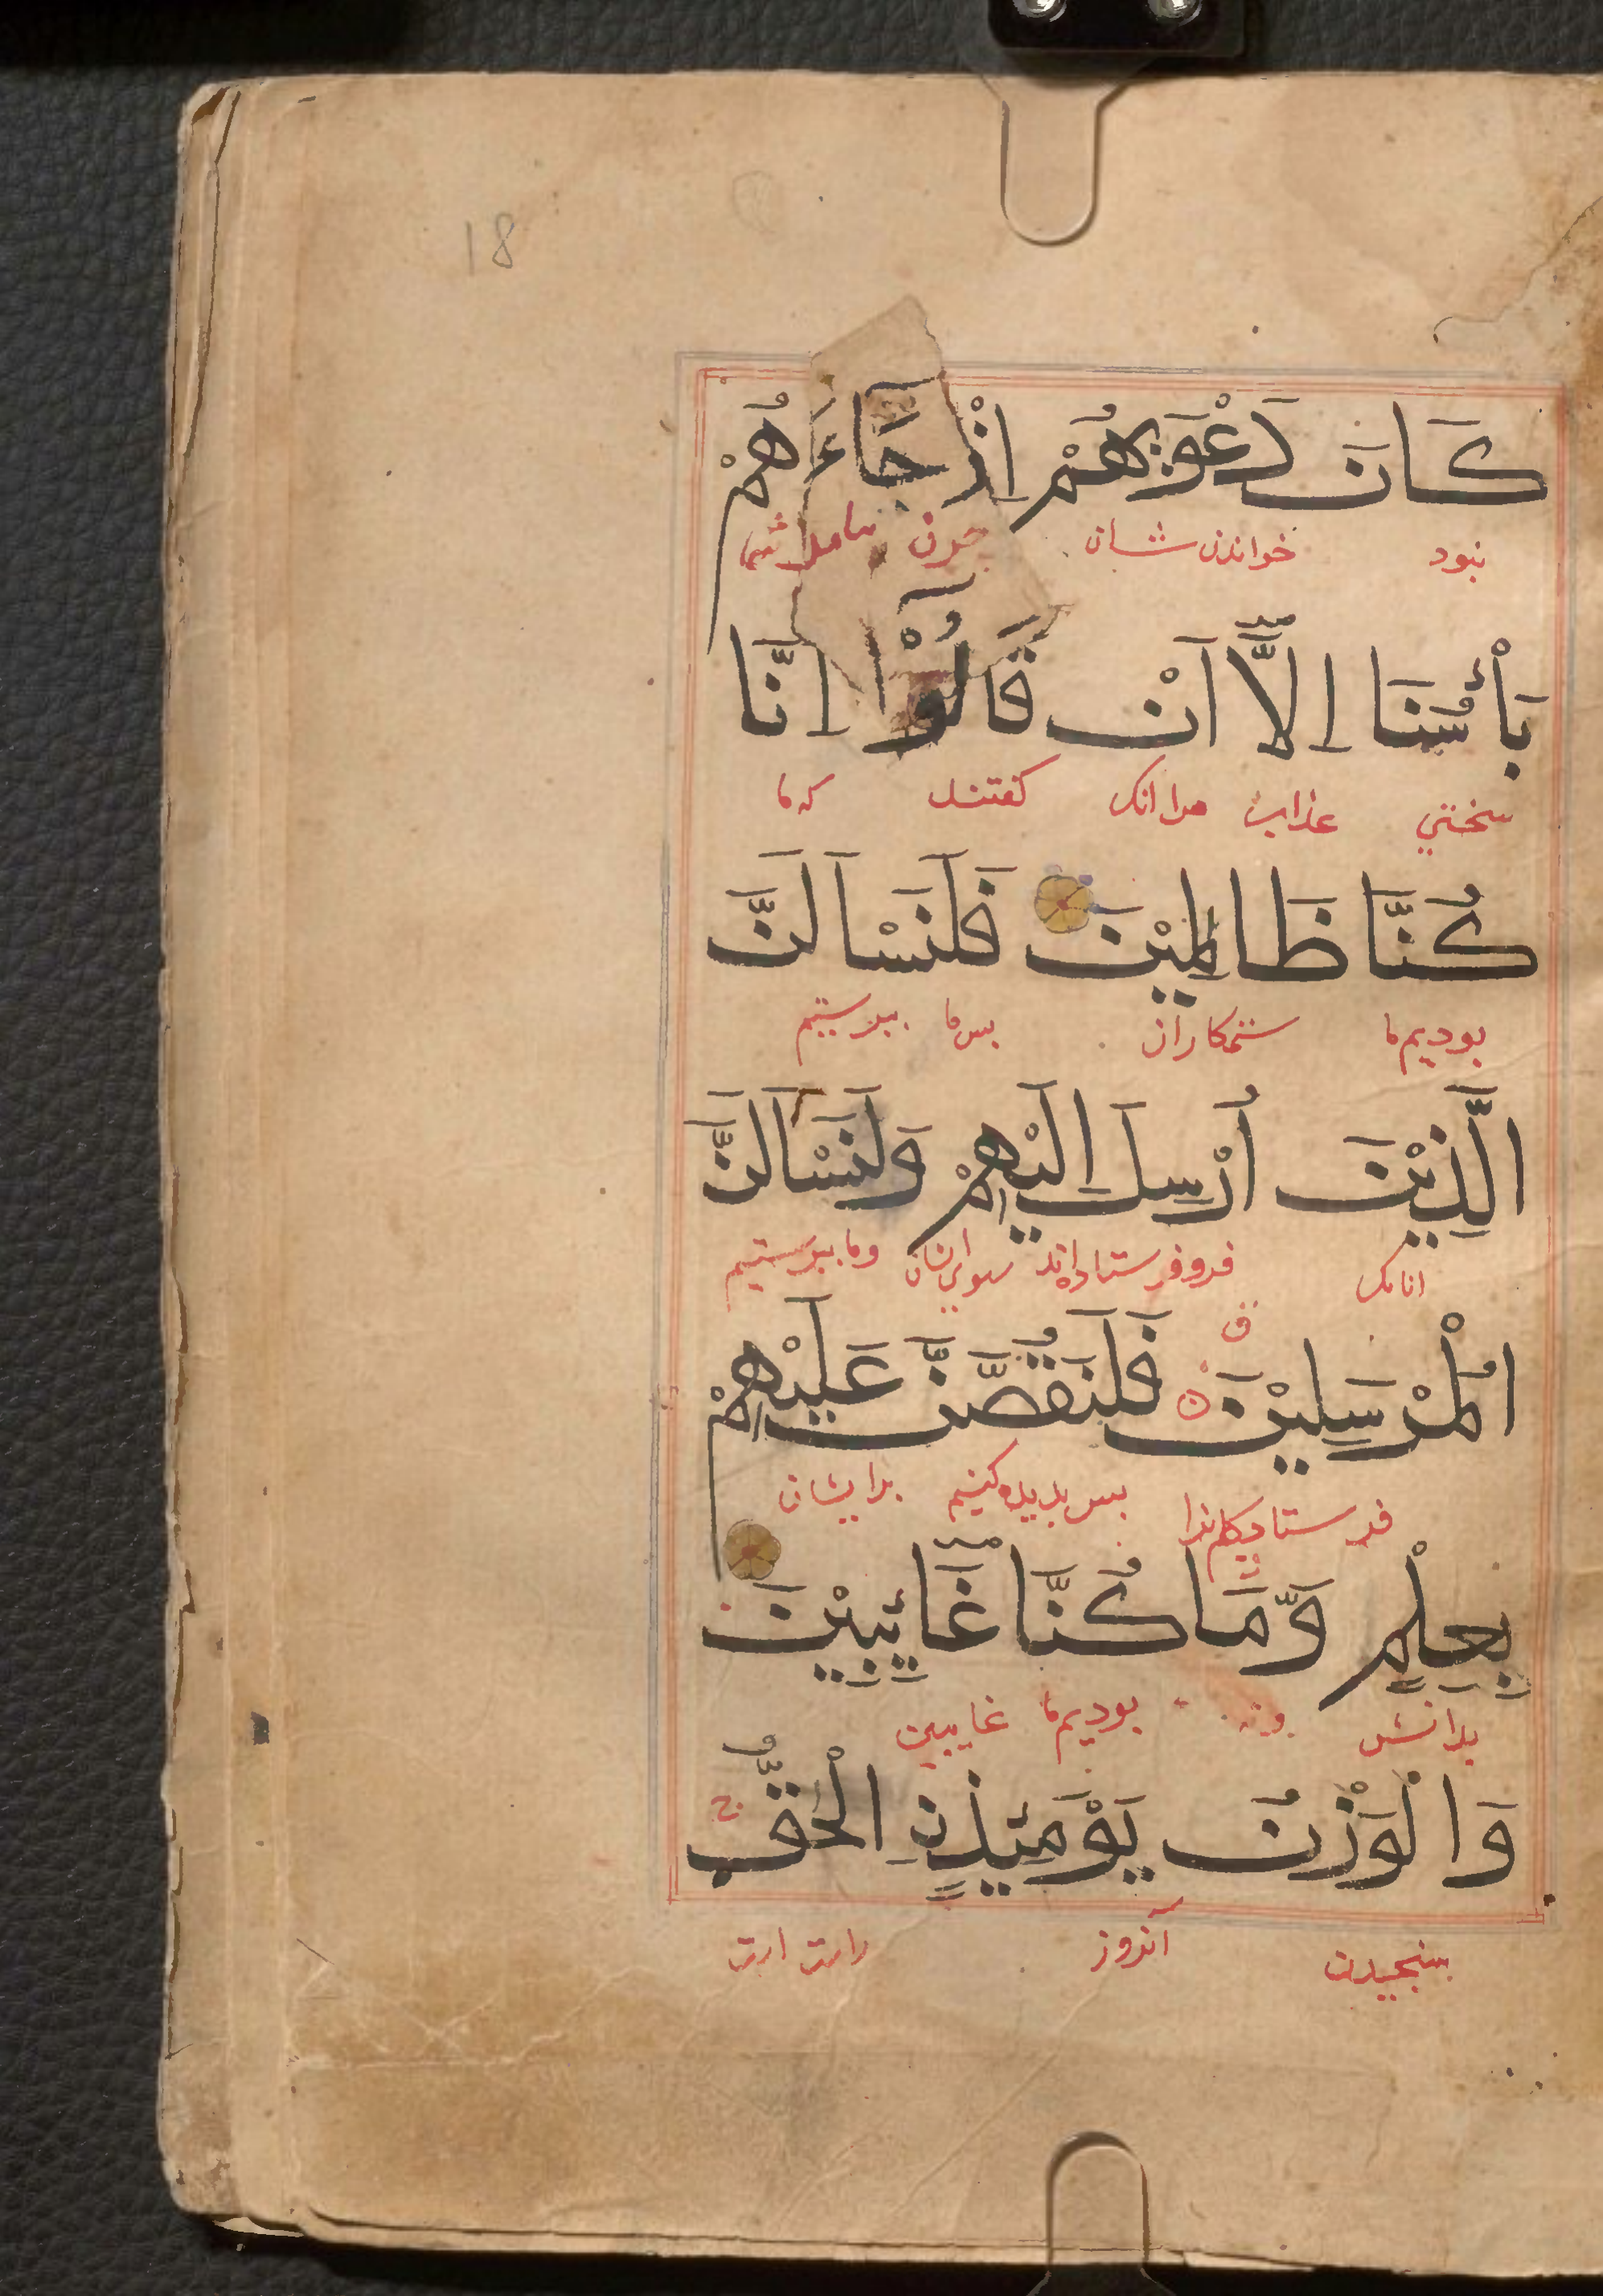 18
كَانَ دَعْوٰىهُمْ اِذْ جَآءَهُمْ
نبود خواندن شان چون بیامد شما
بَأْسُنَا اِلَّآ اَنْ قَالُوْٓا اِنَّا
سختی عذاب مرا انک کفتند که ما
كُنَّا ظَالِمِيْنَ فَلَنَسْاَلَنَّ
بودیم ما ستمکاران بس ما ببرسیم
الَّذِيْنَ اُرْسِلَ اِلَيْهِمْ وَلَنَسْاَلَنَّ
انانک فروفرستاده اند سوی ایشان وما ببرسیم
ق
الْمُرْسَلِيْنَ فَلَنَقُصَّنَّ عَلَيْهِمْ
فرستادیکانرا بس بدیده کنیم برایشان
بِعِلْمٍ وَّمَا كُنَّا غَآئِبِيْنَ
بدانش ونه بودیم ما غایبین
وَالْوَزْنُ يَوْمَئِذِنِ الْحَقُّ ج
سنجیدن آنروز راست است